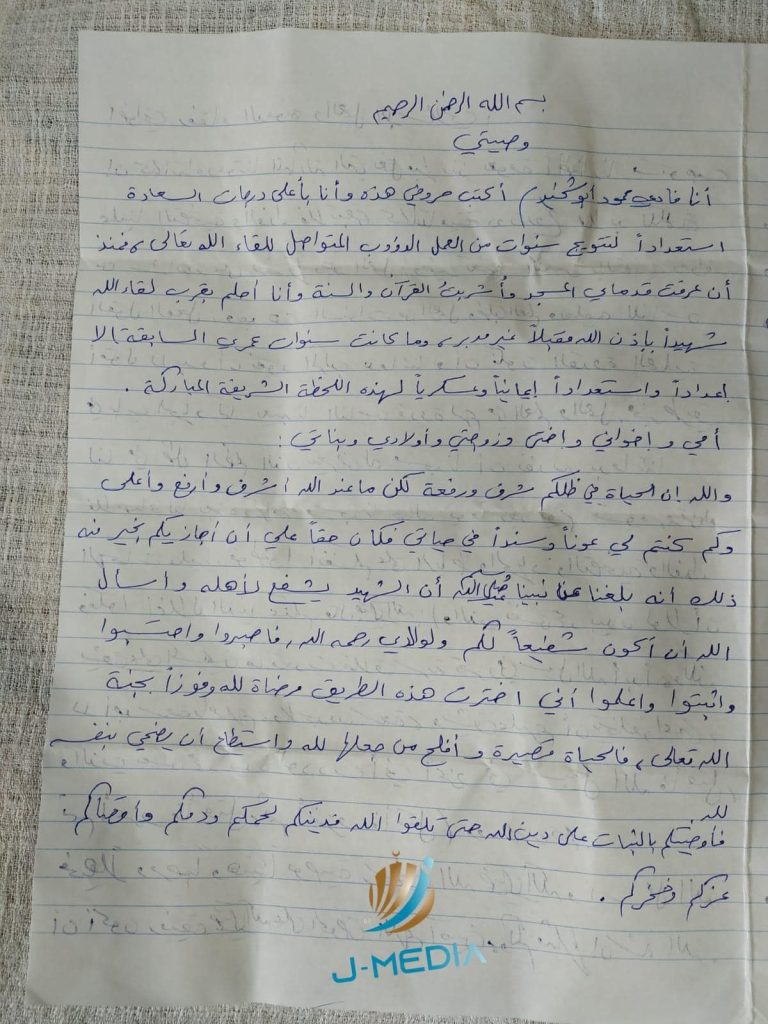 بسم الله الرحمن الرحيم
وصيتي
أنا فادي محمود أبو شخيدم أكتب حروفي هذه وأنا بأعلى درجات السعادة
استعداداً لتتويج سنوات من العمل الدؤوب المتواصل للقاء الله تعالى، فمنذ
أن عرفت قدماي المسجد وأشربت القرآن والسنة وأنا أحلم بقرب لقاء الله
شهيداً بإذن الله مقبلاً غير مدبر، وما كانت سنوات عمري السابقة إلا
إعداداً واستعداداً إيمانياً وعسكرياً لهذه اللحظة الشريفة المباركة.
أمي وإخواني وأختي وزوجتي وأولادي وبناتي:
والله إن الحياة في ظلكم شرف ورفعة لكن ما عند الله أشرف وأرفع وأعلى
وكم كنتم لي عوناً وسنداً في حياتي فكان حقاً علي أن أجازيكم الخير منه
ذلك أنه بلغنا عن نبينا ﷺ أن الشهيد يشفع لأهله وأسأل
الله أن أكون شفيعاً لكم ولوالدي رحمه الله، فاصبروا واحتسبوا
واثبتوا واعلموا أني اخترت هذه الطريق مرضاة لله وفوزاً بجنة
الله تعالى، فالحياة قصيرة وأفلح من جعلها لله واستطاع أن يضحي بنفسه
لله
فأوصيتكم بالثبات على دين الله حتى تلقوا الله فدينكم لحمكم ودمكم
عزكم وفخركم.
J-MEDIA